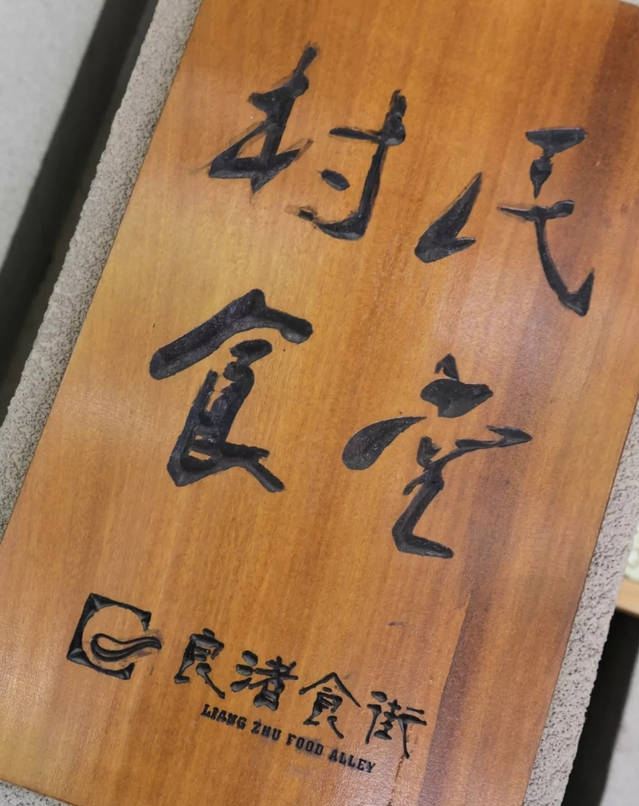 村民
食堂
良渚食街
LIANG ZHU FOOD ALLEY